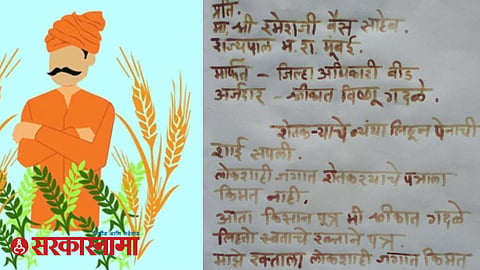 प्रति,
मा. श्री रमेशजी बैस साहेब.
राज्यपाल म. रा. मुंबई.
मार्फत - जिल्हा अधिकारी बीड
अर्जदार - श्रीकांत विष्णू गदळे.
शेतकऱ्याचे व्यथा लिहून पेनाची
शाई संपली.
लोकशाही जगात शेतकऱ्याचे पत्राला
किंमत नाही.
आता किसान पुत्र मी श्रीकांत गदळे
लिहितो स्वताचे रक्ताने पत्र.
माझे रक्ताला लोकशाही जगात किंमत
सरकारनामा